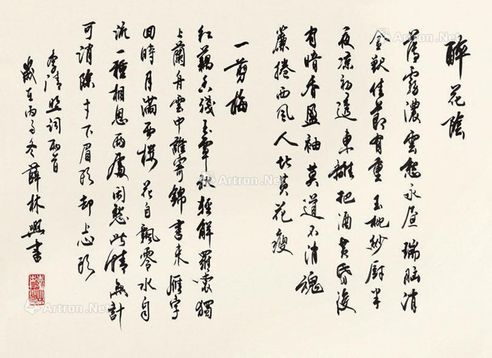 醉花陰
薄霧濃雲愁永晝瑞腦消
金獸佳節有重玉枕紗厨半
夜凉初透東籬把酒黃昏後
有暗香盈袖莫道不消魂
簾捲西風人比黃花瘦
一剪梅
紅藕香殘玉簟秋輕解羅裳獨
上蘭舟雲中誰寄錦書來雁字
回時月滿西樓花自飄零水自
流一種相思兩處閑愁此情無計
可消除才下眉頭却上心頭
李清照詞兩首
歲在丙子冬薛林興書
Artron.Net